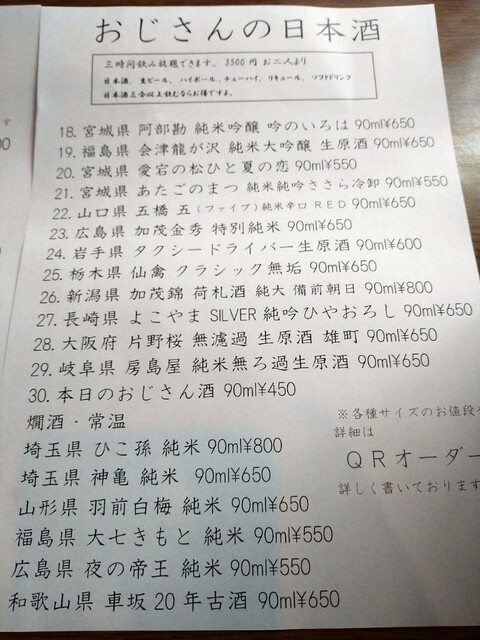 おじさんの日本酒
三時間飲み放題できます。 3500円 お二人より
日本酒、生ビール、ハイボール、チューハイ、リキュール、ソフトドリンク
日本酒三合以上飲むならお得ですよ。
18. 宮城県 阿部勘 純米吟醸 吟のいろは 90ml¥650
19. 福島県 会津龍が沢 純米大吟醸 生原酒 90ml¥650
20. 宮城県 愛宕の松ひと夏の恋 90ml¥550
21. 宮城県 あたごのまつ 純米純吟ささら冷卸 90ml¥550
22. 山口県 五橋 五(ファイブ)純米辛口 RED 90ml¥650
23. 広島県 加茂金秀 特別純米 90ml¥650
24. 岩手県 タクシードライバー生原酒 90ml¥600
25. 栃木県 仙禽 クラシック無垢 90ml¥650
26. 新潟県 加茂錦 荷札酒 純大 備前朝日 90ml¥800
27. 長崎県 よこやま SILVER 純吟ひやおろし 90ml¥650
28. 大阪府 片野桜 無濾過 生原酒 雄町 90ml¥650
29. 岐阜県 房島屋 純米無ろ過生原酒 90ml¥650
30. 本日のおじさん酒 90ml¥450
燗酒・常温
埼玉県 ひこ孫 純米 90ml¥800
埼玉県 神亀 純米 90ml¥650
山形県 羽前白梅 純米 90ml¥650
福島県 大七きもと 純米 90ml¥550
広島県 夜の帝王 純米 90ml¥550
和歌山県 車坂 20年古酒 90ml¥650
※各種サイズのお値段や
詳細は
QRオーダー
詳しく書いております